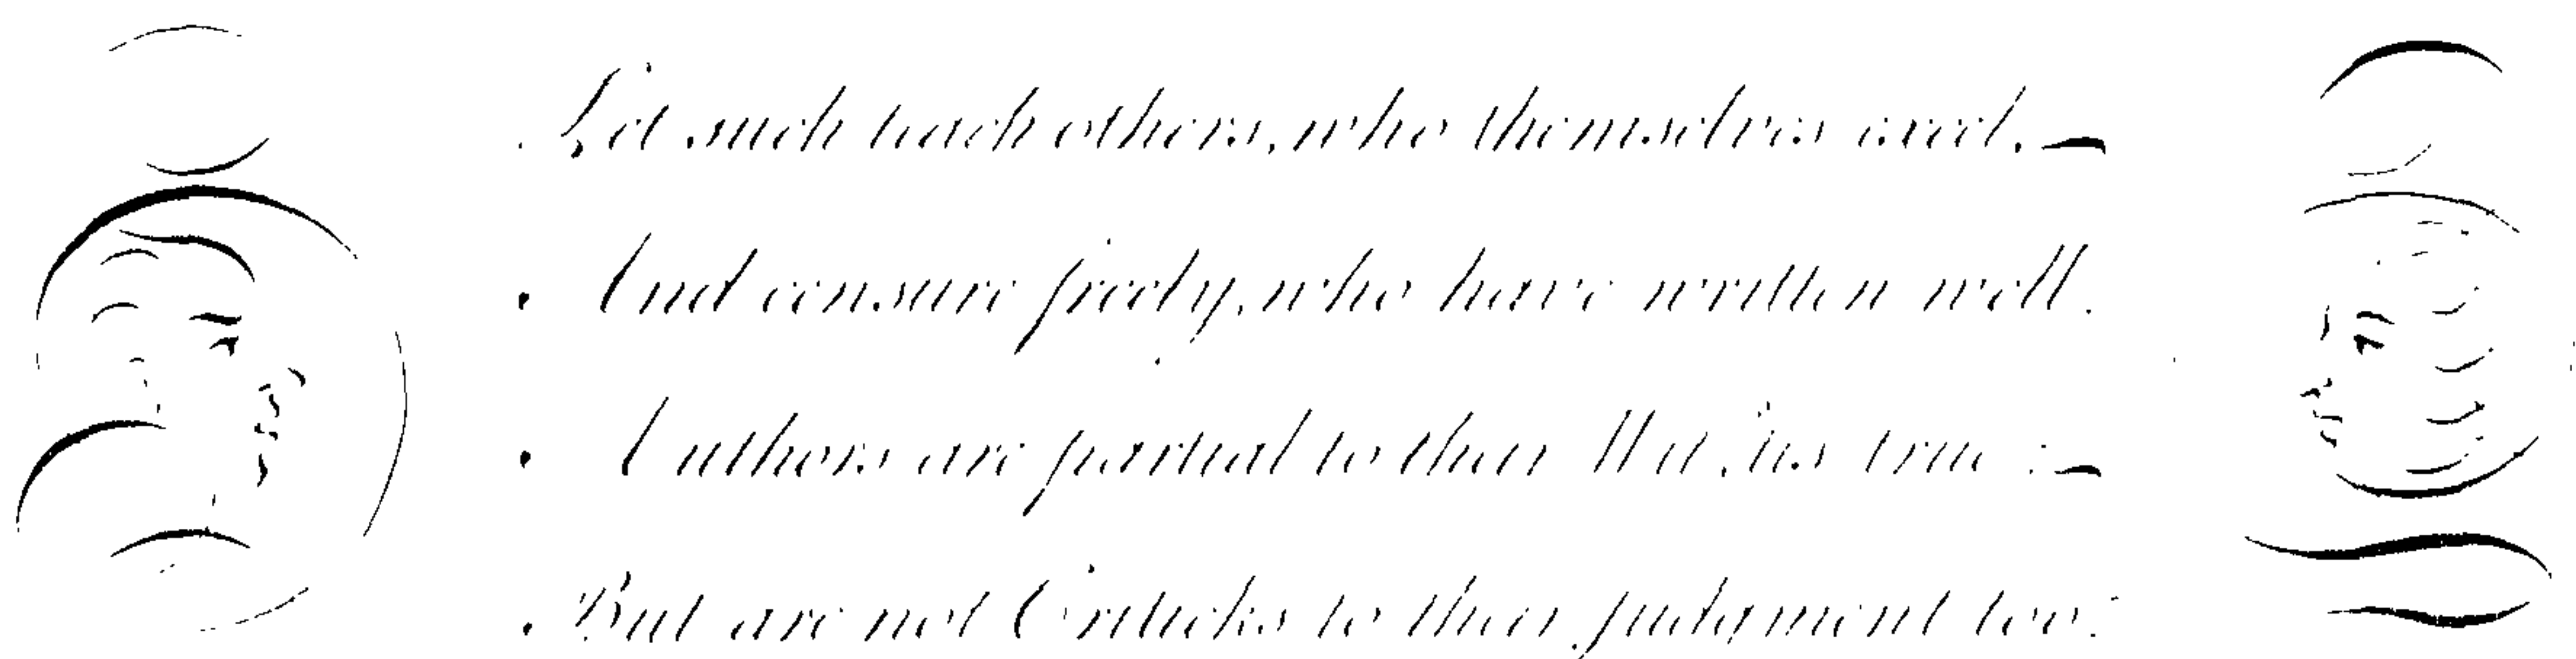 Let such teach others, who themselves excel,
And censure freely, who have written well.
Authors are partial to their Wit, 'tis true:
But are not Criticks to their judgment too?